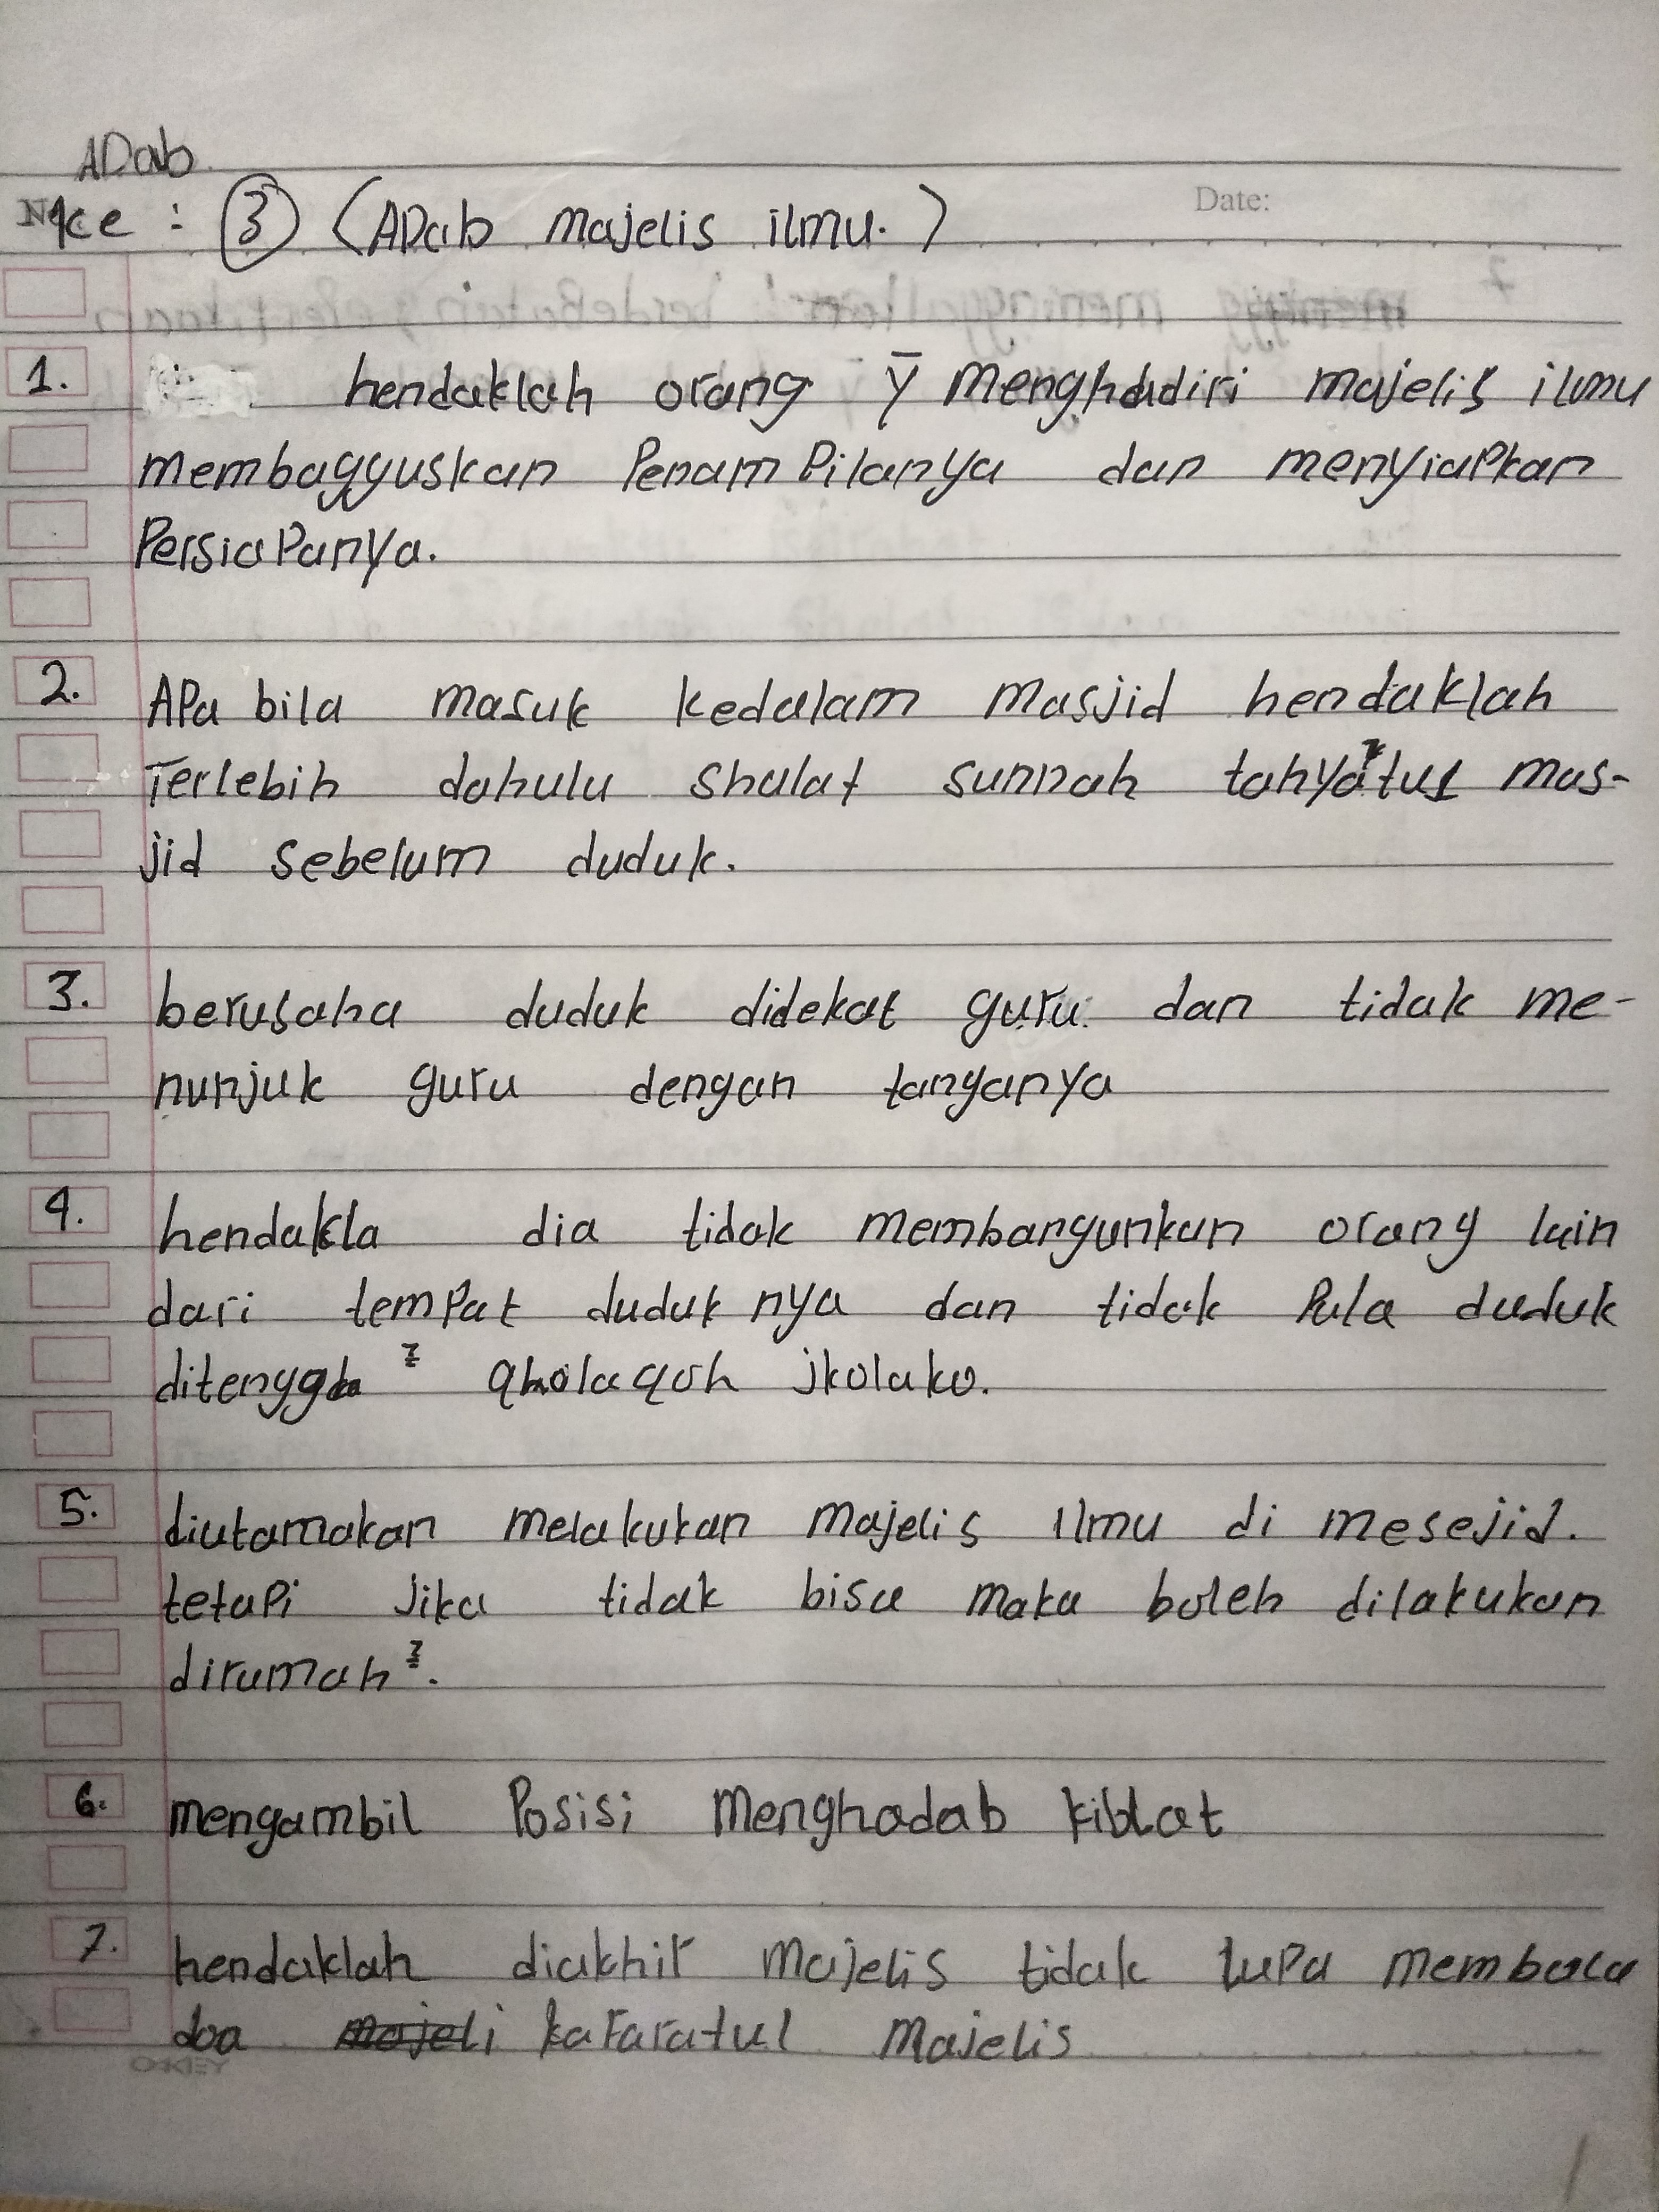 ADab
No
ke : ③ (ADab majelis ilmu.)
Date:
1. hendaklah orang ȳ menghadiri majelis ilmu
membagguskan PenamPilanya dan menyiaPkan
PersiaPanya.
2. APa bila masuk kedalam masjid hendaklah
Terlebih dahulu shalat sunnah tahyatus mas-
jid sebelum duduk.
3. berusaha duduk didekat guru dan tidak me-
nunjuk guru dengan tanganya
4. hendakla dia tidak membangunkan orang lain
dari temPat duduk nya dan tidak Pula duduk
ditengga² qholaqoh
5. diutamakan melakukan majelis ilmu di mesejid.
tetaPi Jika tidak bisa maka boleh dilakukan
dirumah².
6. mengambil Posisi menghadab kiblat
7. hendaklah diakhir majelis tidak luPa membaca
doa majeli kafaratul majelis
OKEY